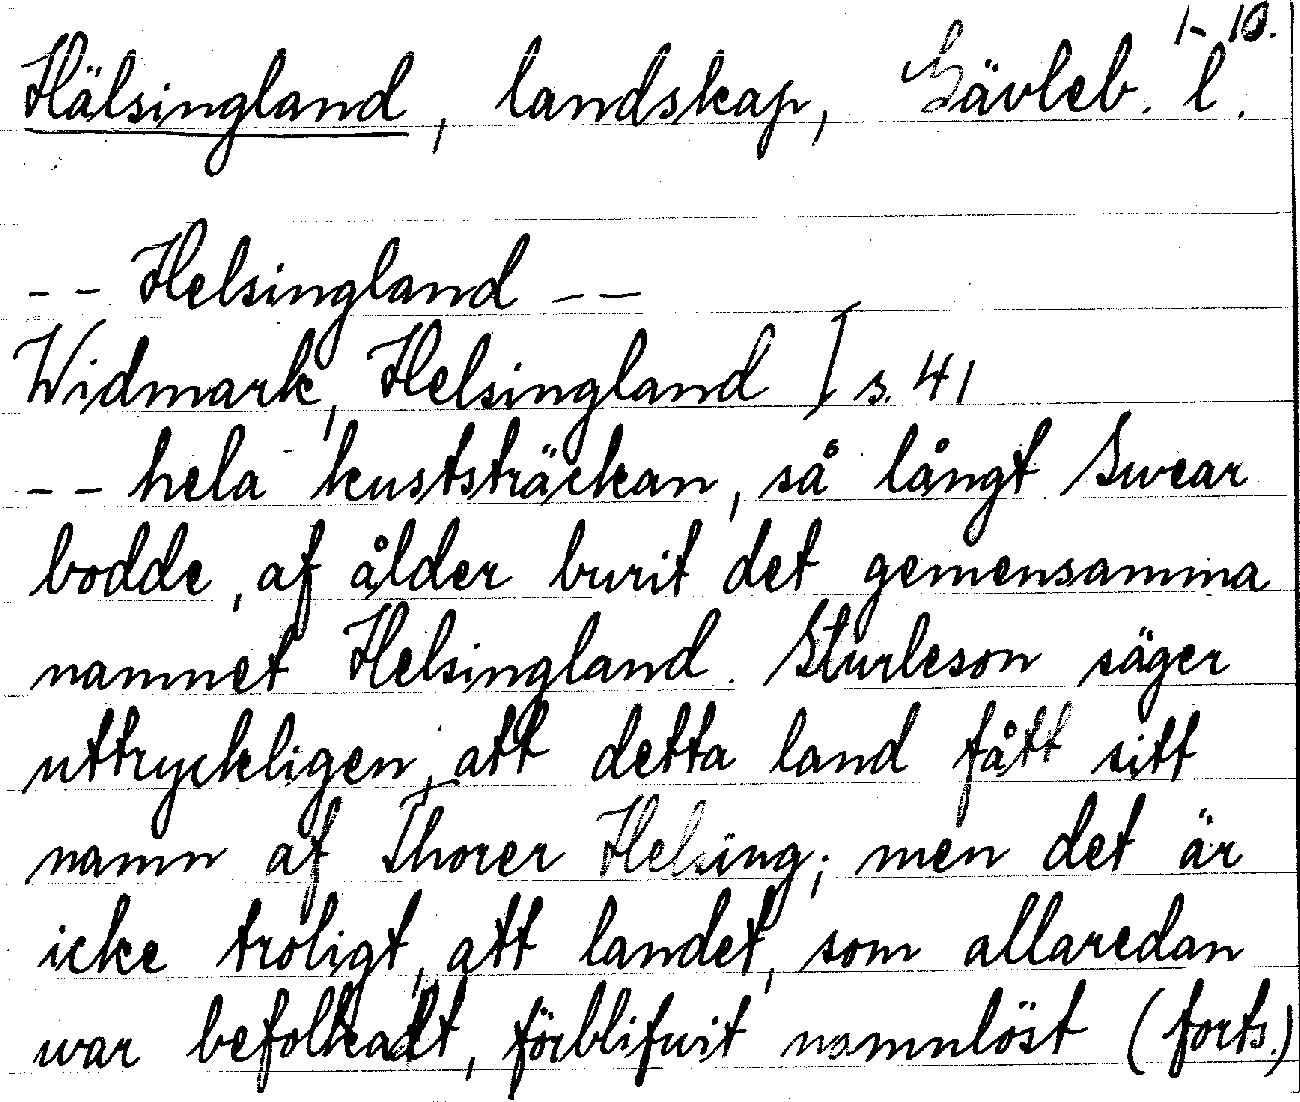 1-10.
Hälsingland, landskap, Gävleb. l.
-- Helsingland --
Widmark, Helsingland I s. 41
-- hela kuststräckan, så långt Swear
bodde, af ålder burit det gemensamma
namnet Helsingland. Sturleson säger
uttryckligen, att detta land fått sitt
namn af Thorer Helsing; men det är
icke troligt, att landet, som allaredan
war befolkadt, förblifvit namnlöst (forts.)